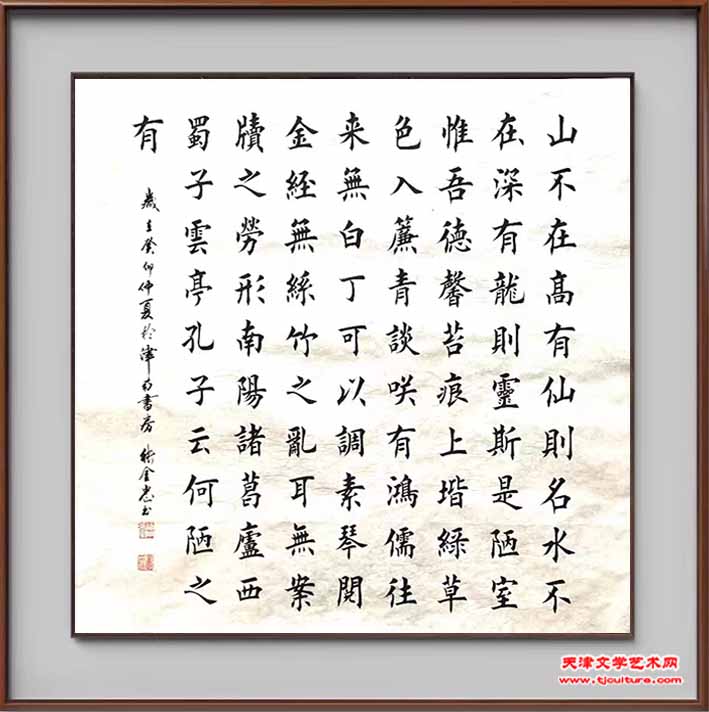 山不在高有仙則名水不
在深有龍則靈斯是陋室
惟吾德馨苔痕上堦綠草
色入簾青談咲有鴻儒往
来無白丁可以調素琴閲
金経無絲竹之亂耳無案
牘之勞形南陽諸葛廬西
蜀子雲亭孔子云何陋之
有
歲在癸卯仲夏於津書斋金忠书
天津文学艺术网
www.tjculture.com